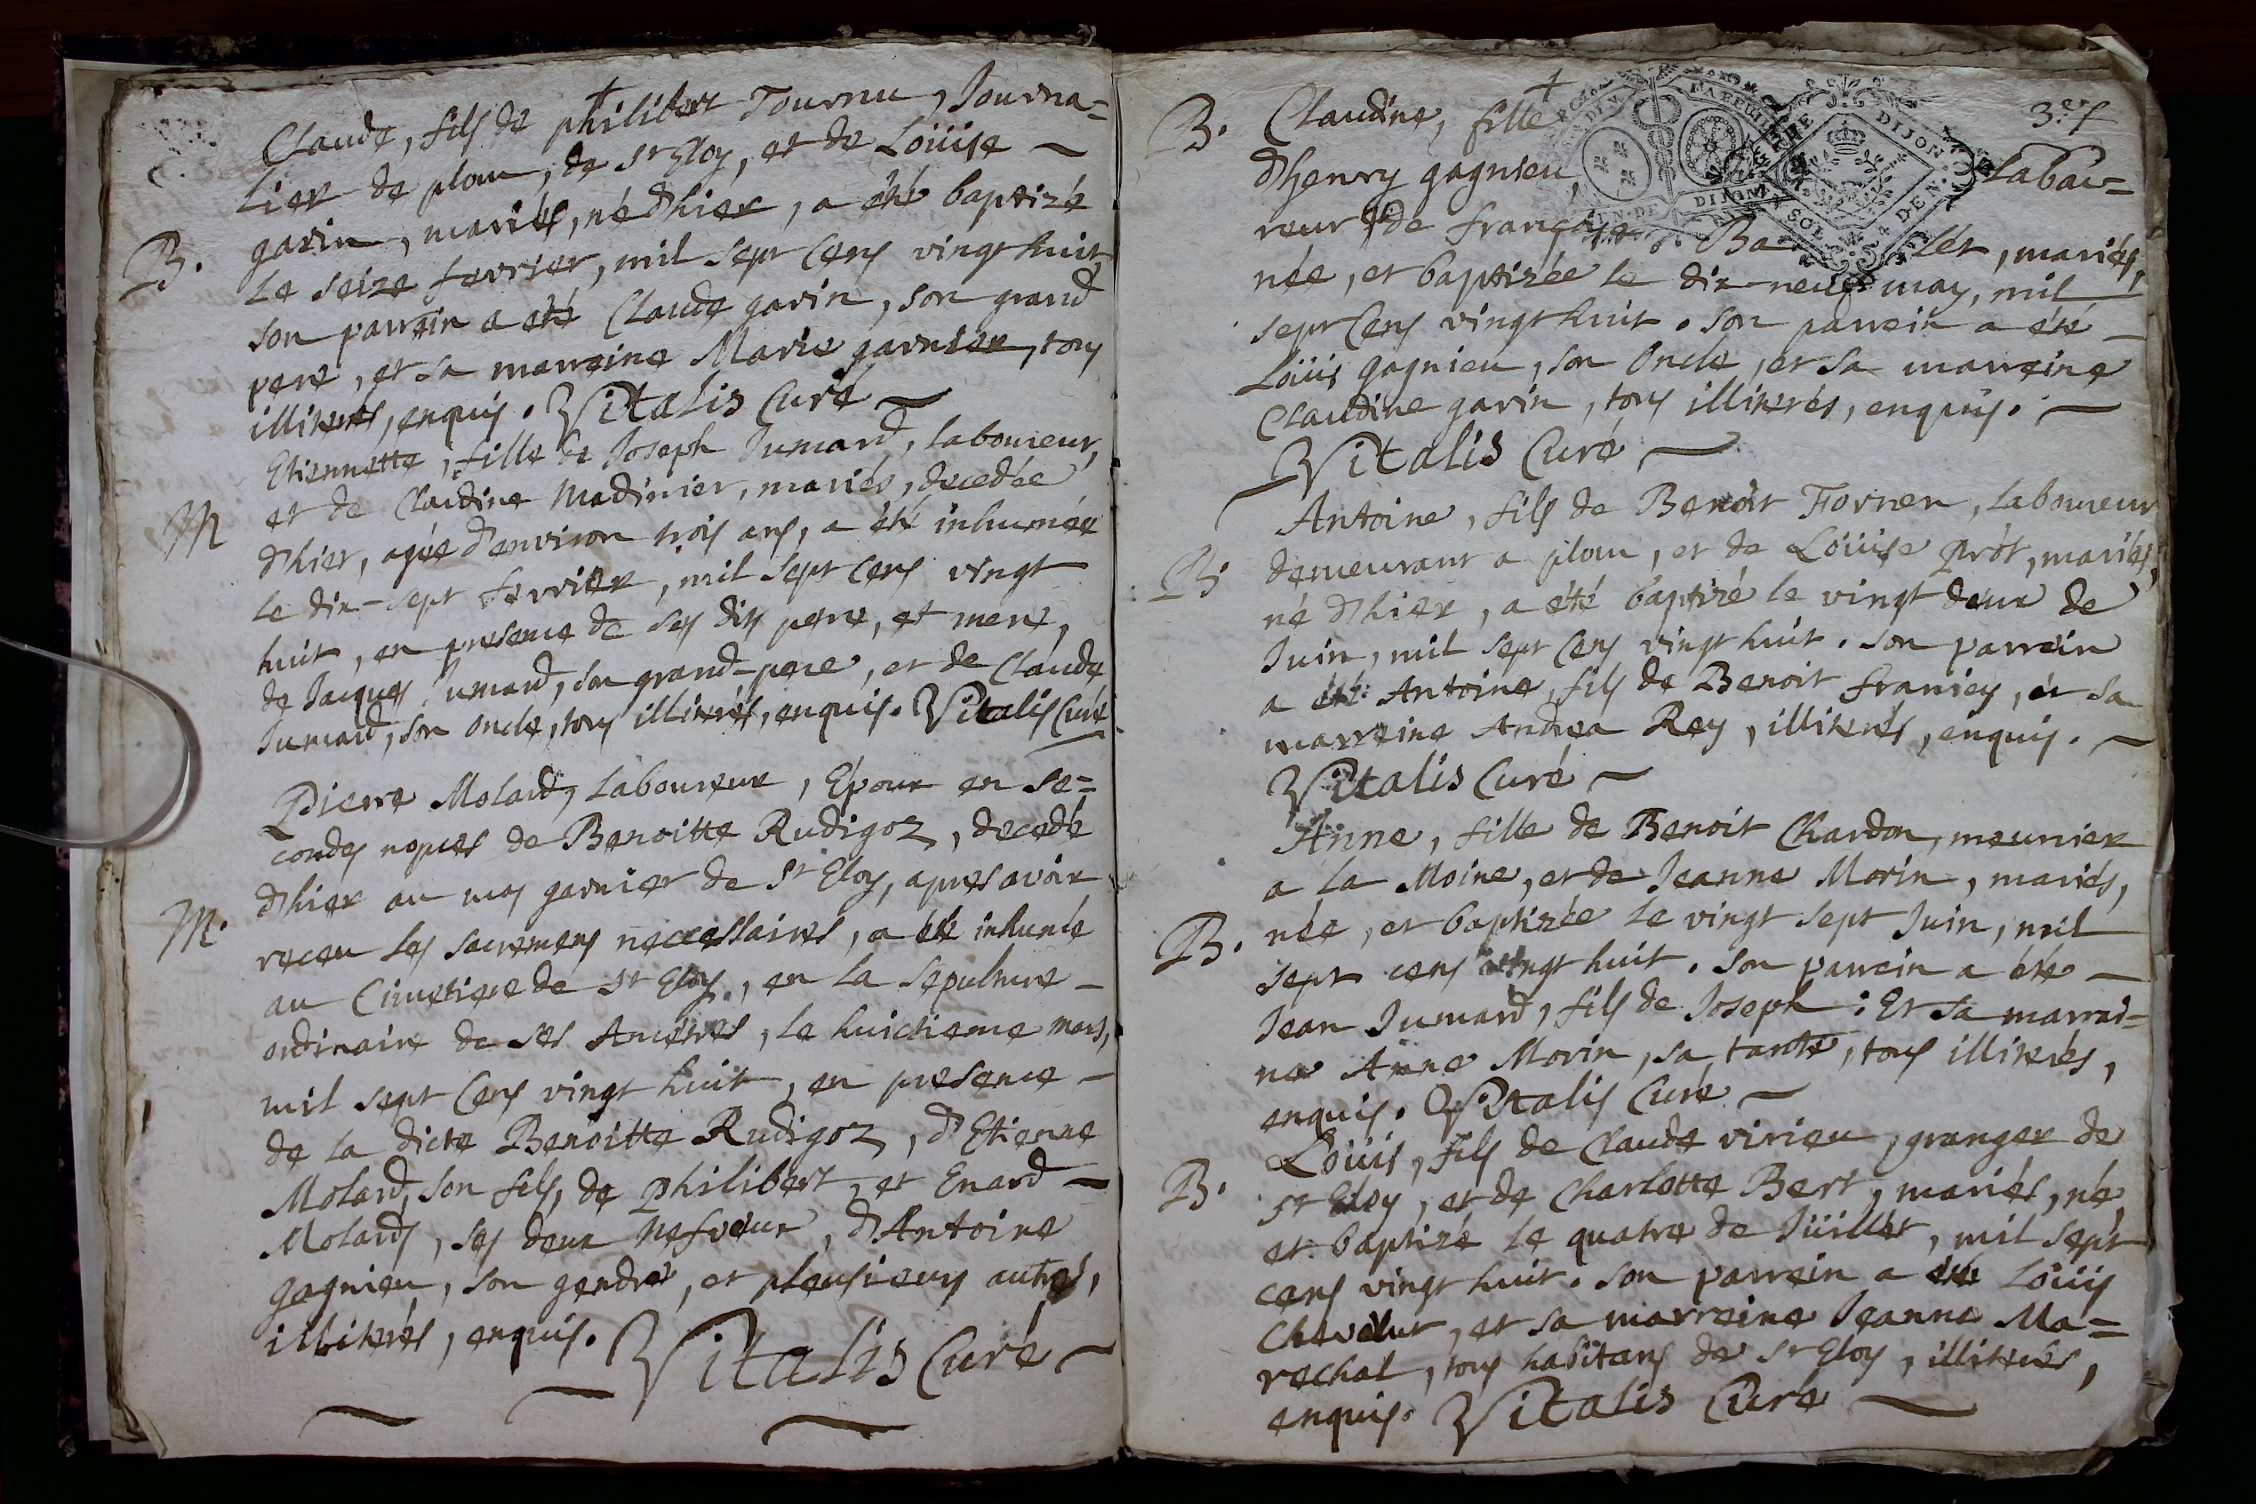 Claude, fils de philibert Tournu, Journa=
lier de plom, de st Eloy, et de Loüise
B. gavin, mariés, né d'hier, a été baptizé
Le seize fevrier, mil sept cens vingt huit
son parrein a été Claude gavin, son grand
pere, et sa marreine Marie garnier, tous
illiterés, enquis. Vitalis Curé
Etiennette, fille de Joseph Jumard, laboureur,
M et de Claudine Madinier, mariés, decedée
d'hier, agée d'environ trois ans, a été inhumée
le dix-sept fevrier, mil sept cens vingt
huit, en presence de ses dits pere, et mere,
de Jacques Jumard, son grand-pere, et de Claude
Jumard, son oncle, tous illiterés, enquis. Vitalis Curé
Pierre Molard, Laboureur, Epoux en se=
condes nopces de Benoitte Rudigoz, decedé
d'hier au mas garnier de st Eloy, apres avoir
M. receu les sacremens necessaires, a été inhumé
au Cimetiere de st Eloy, en la sepulture
ordinaire de ses Ancêtres, le huictieme mars,
mil sept cens vingt huit, en presence
de la dicte Benoitte Rudigoz, d'Etienne
Molard, son fils, de philibert, et Enard
Molard, ses deux nefveux, d'Antoine
gagnieu, son gendre, et plusieurs autres,
illiterés, enquis. Vitalis Curé
3.e f
B. Claudine, fille
d'henry gagnieu, labou=
reur de françoise Ba let, mariés,
née, et baptizée le dix-neuf may, mil
sept cens vingt huit. son parrein a été
Loüis gagnieu, son oncle, et sa marreine
Claudine gavin, tous illiterés, enquis.
Vitalis Curé
Antoine, fils de Benoit Forren, laboureur
B. demeurant a plom, et de Loüise prôt, mariés,
né d'hier, a été baptizé le vingt deux de
Juin, mil sept cens vingt huit. son parrein
a été Antoine, fils de Benoit et sa
marreine Andrea Rey, illiterés, enquis.
Vitalis Curé
Anne, fille de Benoit Chardon, meunier
a la Moine, et de Jeanne Morin, mariés,
B. née, et baptizée le vingt sept Juin, mil
sept cens vingt huit. son parrein a été
Jean Jumard, fils de Joseph; Et sa marrai=
ne Anne Morin, sa tante, tous illiterés,
enquis. Vitalis Curé
Loüis, fils de Claude virieu, granger de
B. st Eloy, et de Charlotte Bert, mariés, né,
et baptizé le quatre de Juillet, mil sept
cens vingt huit. son parrein a été Loüis
et sa marreine Jeanne Ma=
rechal, tous habitans de st Eloy, illiterés,
enquis. Vitalis Curé